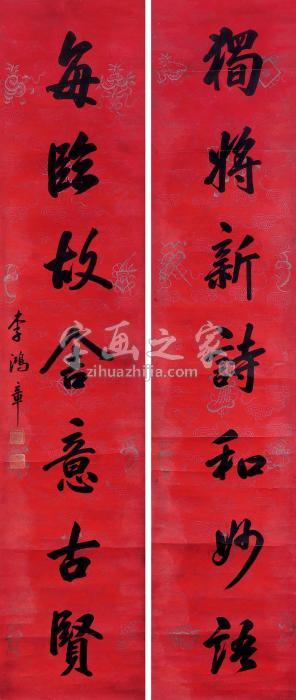 獨將新詩和妙語
每臨故舍意古賢
李鴻章
字画之家
zihuazhijia.com